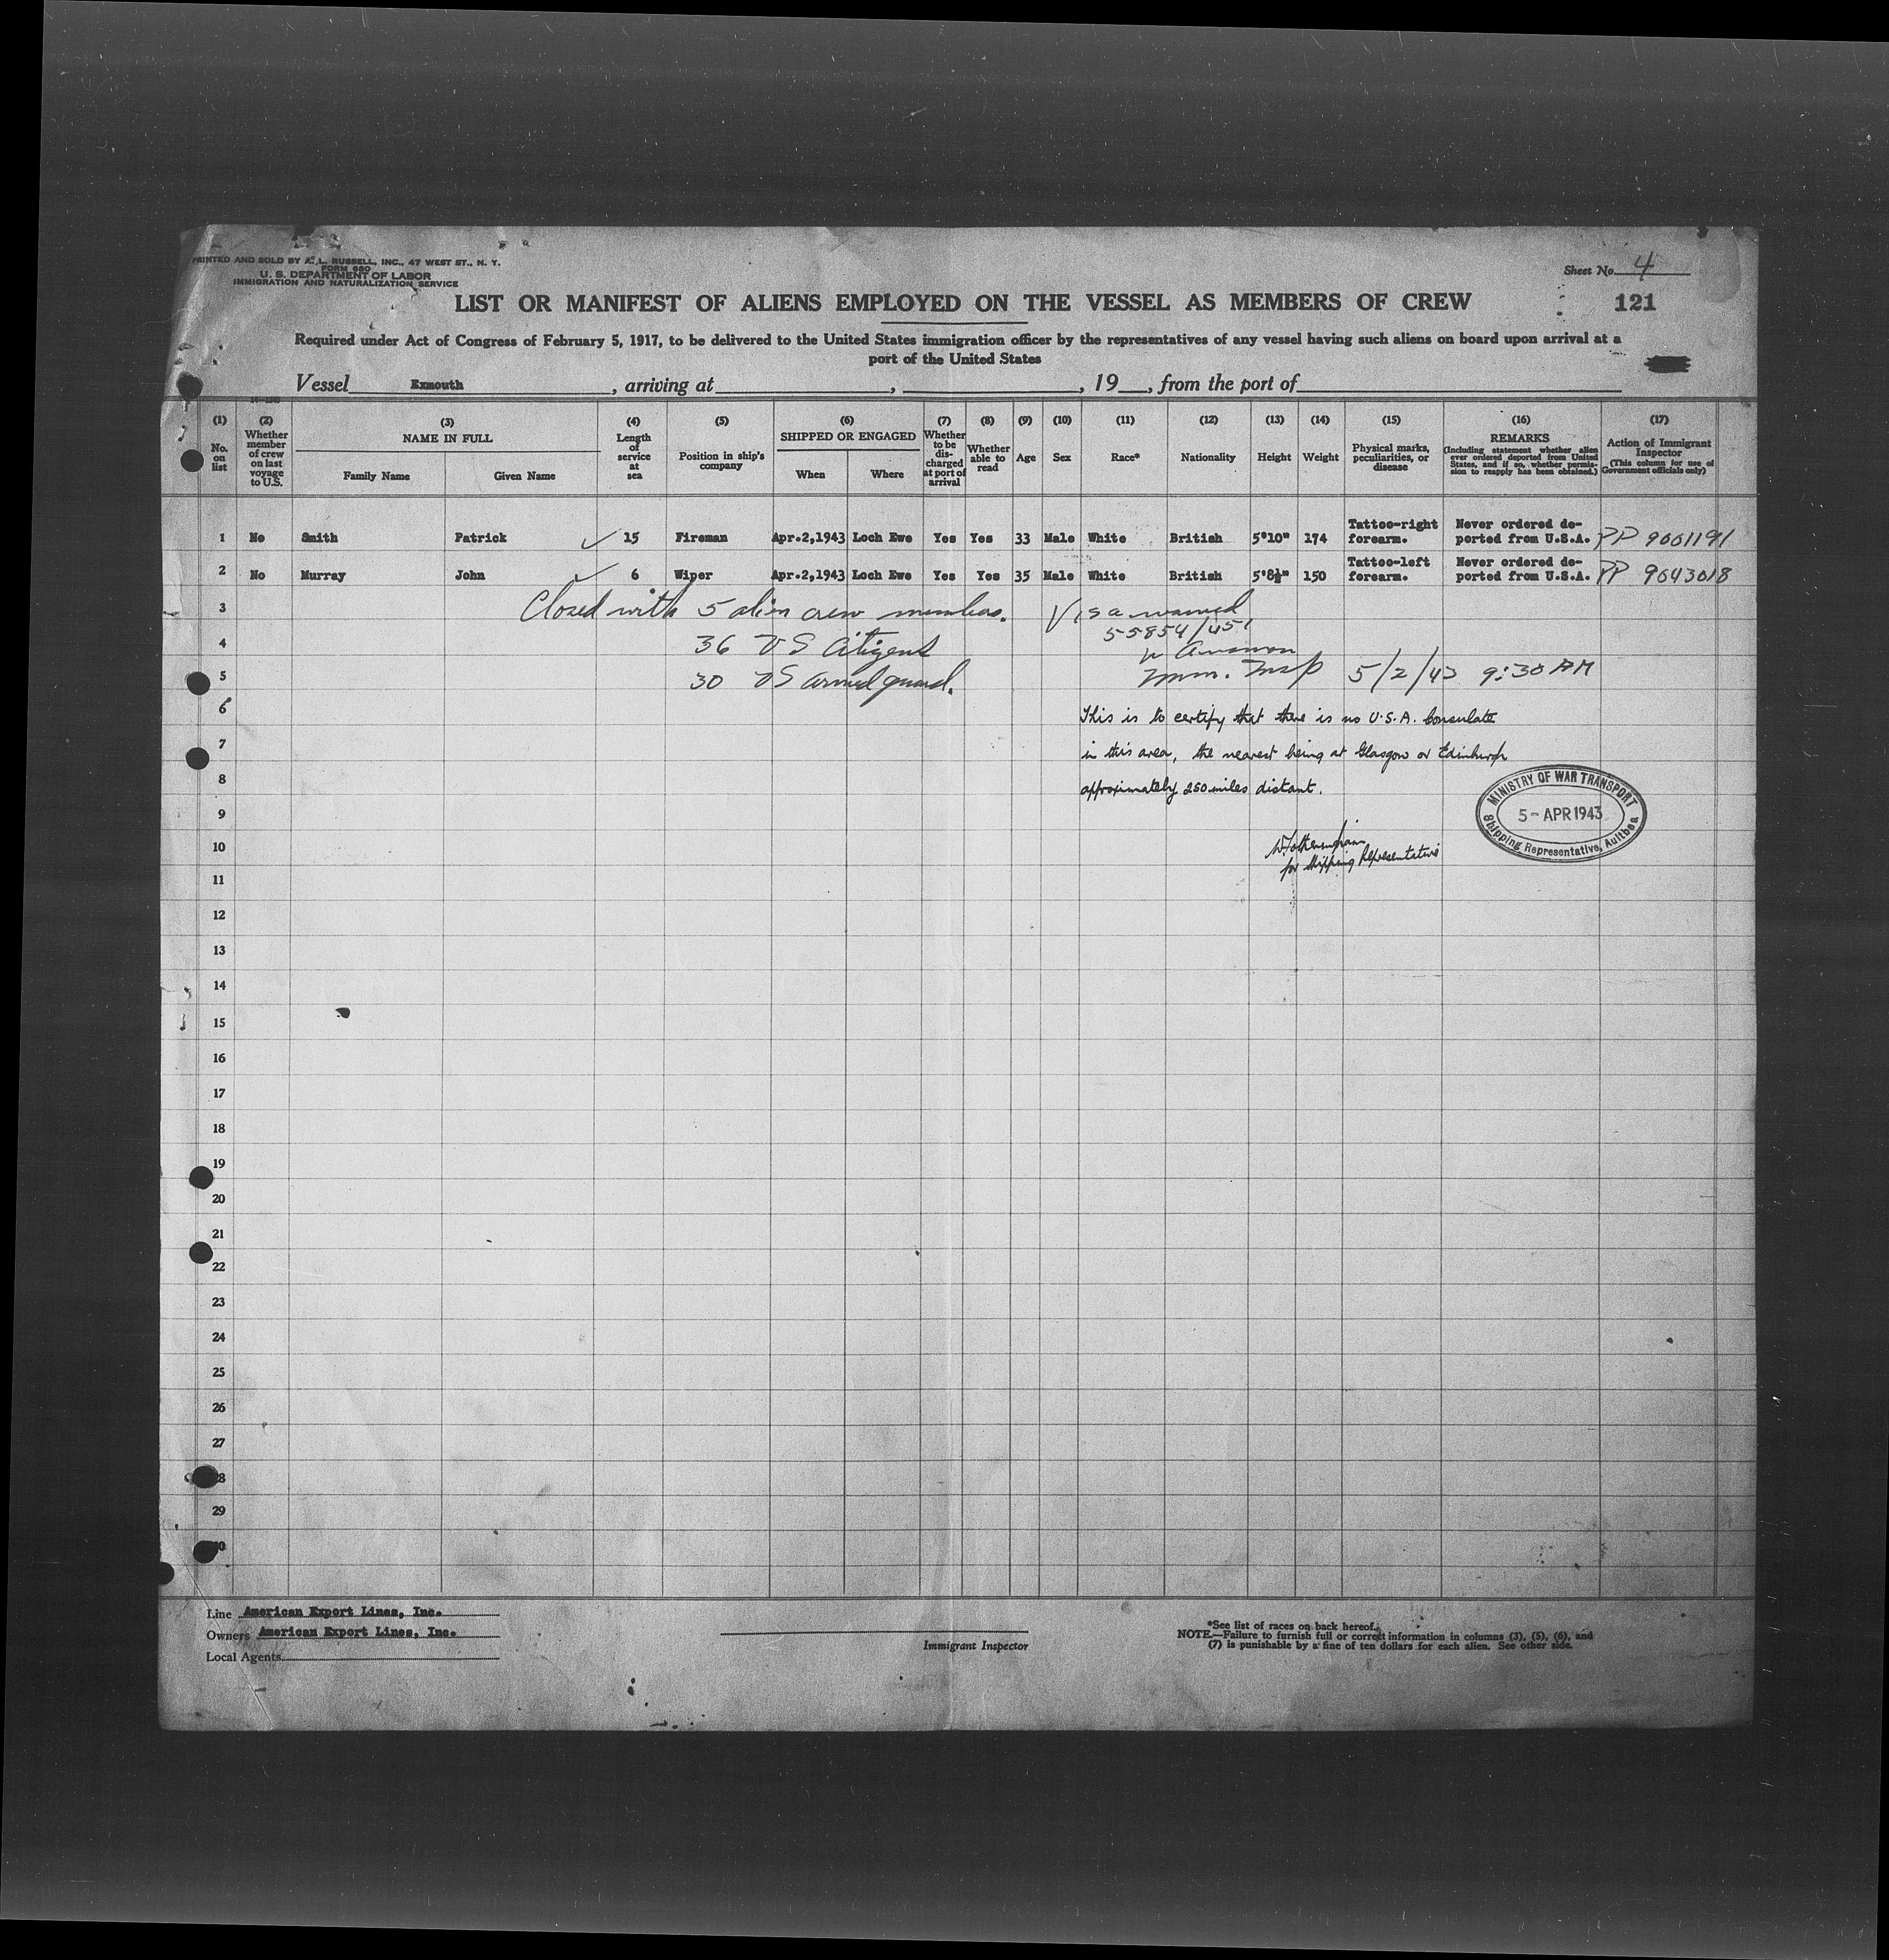 PRINTED AND SOLD BY A. L. RUSSELL, INC., 47 WEST ST., N. Y.
FORM 680
U. S. DEPARTMENT OF LABOR
IMMIGRATION AND NATURALIZATION SERVICE
Sheet No. 4
LIST OR MANIFEST OF ALIENS EMPLOYED ON THE VESSEL AS MEMBERS OF CREW
121
Required under Act of Congress of February 5, 1917, to be delivered to the United States immigration officer by the representatives of any vessel having such aliens on board upon arrival at a
port of the United States
Vessel Exmouth, arriving at , , 19 , from the port of
(1) No. on list
(2) Whether member of crew on last voyage to U.S.
(3) NAME IN FULL Family Name Given Name
(4) Length of service at sea
(5) Position in ship's company
(6) SHIPPED OR ENGAGED When Where
(7) Whether to be dis-charged at port of arrival
(8) Whether able to read
(9) Age
(10) Sex
(11) Race*
(12) Nationality
(13) Height
(14) Weight
(15) Physical marks, peculiarities, or disease
(16) REMARKS (Including statement whether alien ever ordered deported from United States, and if so, whether permis-sion to reapply has been obtained.)
(17) Action of Immigrant Inspector (This column for use of Government officials only)
1 No Smith Patrick ✓ 15 Fireman Apr.2,1943 Loch Ewe Yes Yes 33 Male White British 5'10" 174 Tattoo-right forearm. Never ordered de-ported from U.S.A. PP 9001191
2 No Murray John ✓ 6 Wiper Apr.2,1943 Loch Ewe Yes Yes 35 Male White British 5'8½" 150 Tattoo-left forearm. Never ordered de-ported from U.S.A. PP 9643018
3 Closed with 5 alien crew members. Visa waived
55854/451
4 36 US Citizens
5 30 US armed guard. Imm. Insp 5/2/43 9:30 AM
6 This is to certify that there is no U.S.A. Consulate
7 in this area, the nearest being at Glasgow or Edinburgh
8 approximately 250 miles distant.
MINISTRY OF WAR TRANSPORT
5 - APR 1943
Shipping Representative, Aultbea
9
10 W Fotheringham
for Shipping Representative
11
12
13
14
15
16
17
18
19
20
21
22
23
24
25
26
27
28
29
30
Line American Export Lines, Inc.
Owners American Export Lines, Inc.
Local Agents
Immigrant Inspector
*See list of races on back hereof.
NOTE.—Failure to furnish full or correct information in columns (3), (5), (6), and
(7) is punishable by a fine of ten dollars for each alien. See other side.